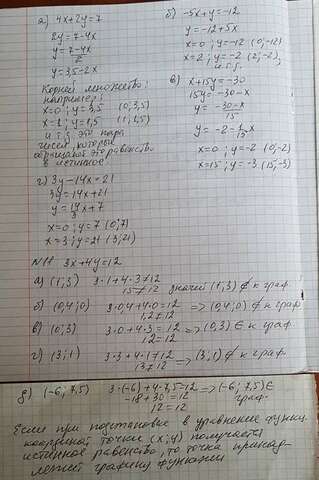 а) 4x+2y=7
2y=7-4x
y=7-4x/2
y=3,5-2x
Корней множество,
например:
x=0; y=3,5 (0;3,5)
x=1; y=1,5 (1;1,5)
и т.д. это пара
чисел, которые
обращают это равенств.
в истинное
б) -5x+y=-12
y=-12+5x
x=0; y=-12 (0;-12)
x=2; y=-2 (2;-2),
и т.д.
в) x+15y=-30
15y=-30-x
y=-30-x/15
y=-2-1/15x
x=0; y=-2 (0;-2)
x=15; y=-3 (15;-3)
г) 3y-14x=21
3y=14x+21
y=14/3x+7
x=0; y=7 (0;7)
x=3; y=21 (3;21)
N11 3x+4y=12
а) (1;3) 3·1+4·3≠12
15≠12 значит (1;3) ∉ к граф.
б) (0,4;0) 3·0,4+4·0=12 => (0,4;0) ∉ к граф
1,2≠12
в) (0;3) 3·0+4·3=12 => (0;3) ∈ к граф.
12=12
г) (3;1) 3·3+4·1≠12 => (3;1) ∉ к граф
13≠12
д) (-6;7,5) 3·(-6)+4·7,5=12 => (-6;7,5) ∈
-18+30=12 граф.
12=12
Если при подстановке в уравнение функц.
координат точки (x;y) получается
истинное равенство, то точка принад-
лежит графику функции